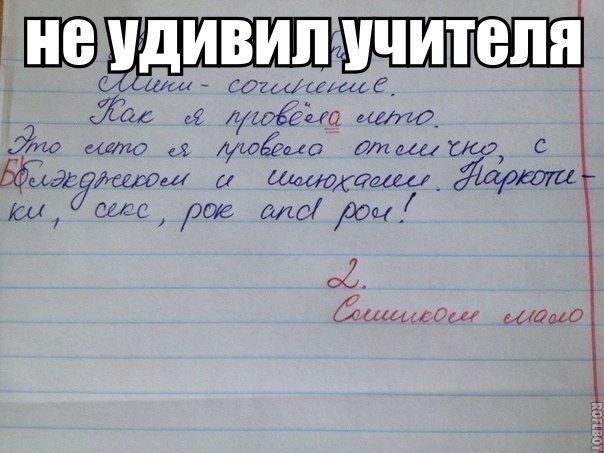 не удивил учителя
Мини - сочинение.
Как я провела лето.
Это лето я провела отлично, с
Блэкджеком и шлюхами. Наркоти-
ки, секс, рок and рол!
2.
Слишком мало
ROFLBOT